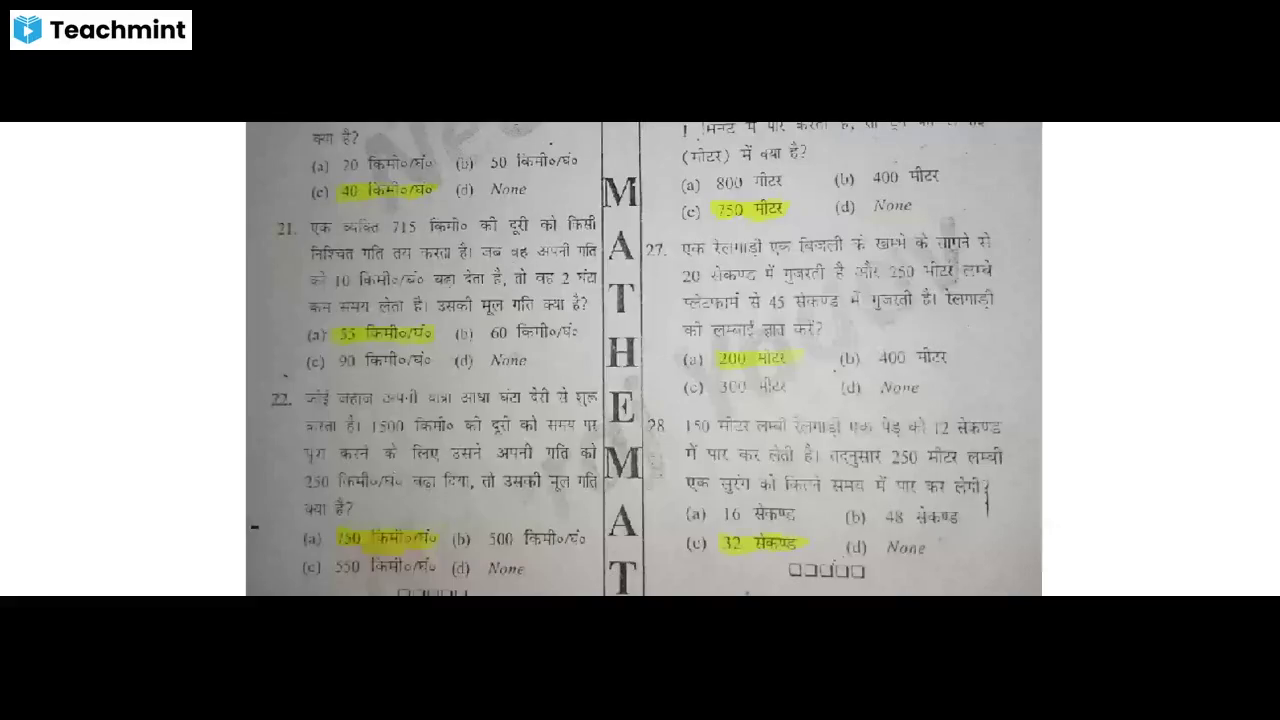 Teachmint
क्या है?
(a) 20 किमी०/घं० (b) 50 किमी०/घं०
(c) 40 किमी०/घं० (d) None
21. एक व्यक्ति 715 किमी० की दूरी को किसी
निश्चित गति तय करता है। जब वह अपनी गति
को 10 किमी०/घं० बढ़ा देता है, तो वह 2 घंटा
कम समय लेता है। उसकी मूल गति क्या है?
(a) 55 किमी०/घं० (b) 60 किमी०/घं०
(c) 90 किमी०/घं० (d) None
22. कोई जहाज अपनी यात्रा आधा घंटा देरी से शुरू
करता है। 1500 किमी० की दूरी को समय पर
पूरा करने के लिए उसने अपनी गति को
250 किमी०/घं० बढ़ा दिया, तो उसकी मूल गति
क्या है?
(a) 750 किमी०/घं० (b) 500 किमी०/घं०
(c) 550 किमी०/घं० (d) None
MATHEMAT
मिनट में पार करती है, तो
(मीटर) में क्या है?
(a) 800 मीटर (b) 400 मीटर
(c) 750 मीटर (d) None
27. एक रेलगाड़ी एक बिजली के खम्भे के सामने से
20 सेकण्ड में गुजरती है और 250 मीटर लम्बे
प्लेटफार्म से 45 सेकण्ड में गुजरती है। रेलगाड़ी
की लम्बाई ज्ञात करें?
(a) 200 मीटर (b) 400 मीटर
(c) 300 मीटर (d) None
28. 150 मीटर लम्बी रेलगाड़ी एक पेड़ को 12 सेकण्ड
में पार कर लेती है। तद्नुसार 250 मीटर लम्बी
एक सुरंग को कितने समय में पार कर लेगी?
(a) 16 सेकण्ड (b) 48 सेकण्ड
(c) 32 सेकण्ड (d) None